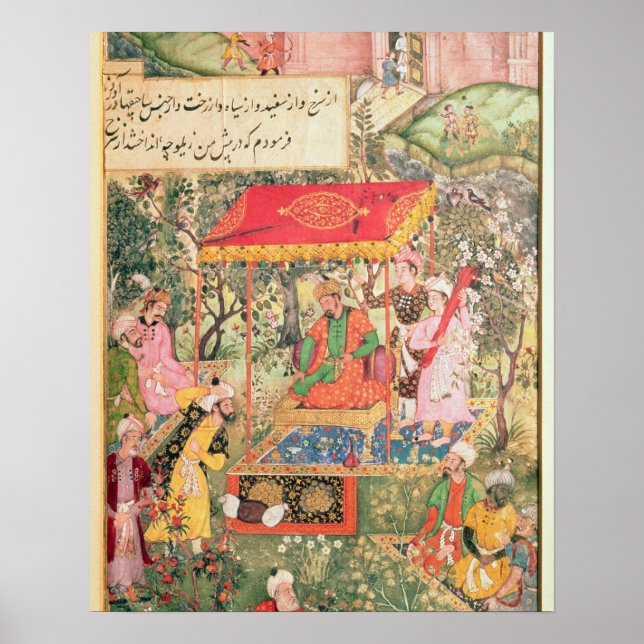 از سرخ و از سفید و از سیاه و از رخت و از جنس ساچقها آورده
فرمودم که در پیش من زیلوچه انداختند از سرخ